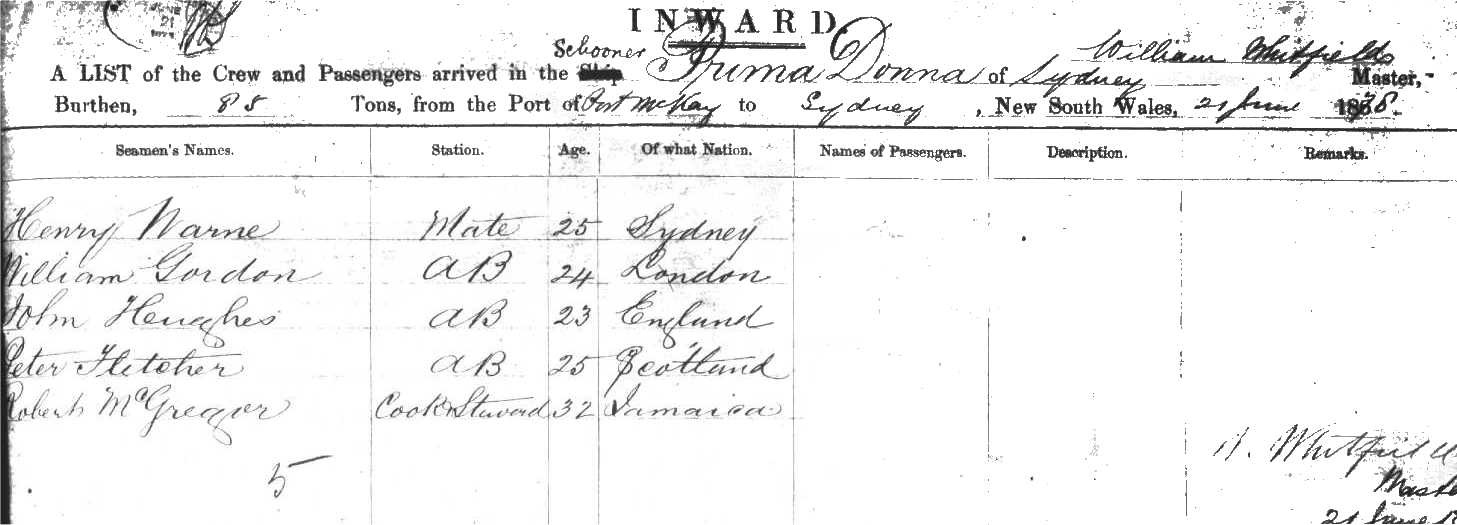 JUNE
21
INWARD
Schooner William Whitfield
A LIST of the Crew and Passengers arrived in the Ship Prima Donna of Sydney Master,
Burthen, 85 Tons, from the Port of Port McKay to Sydney, New South Wales, 21 June 1878
Seamen's Names. Station. Age. Of what Nation. Names of Passengers. Description. Remarks.
Henry Warne Mate 25 Sydney
William Gordon AB 24 London
John Heughes AB 23 England
Peter Fletcher AB 25 Scotland
Robert McGregor Cook & Steward 32 Jamaica
5
W. Whitfield
Maste
21 June